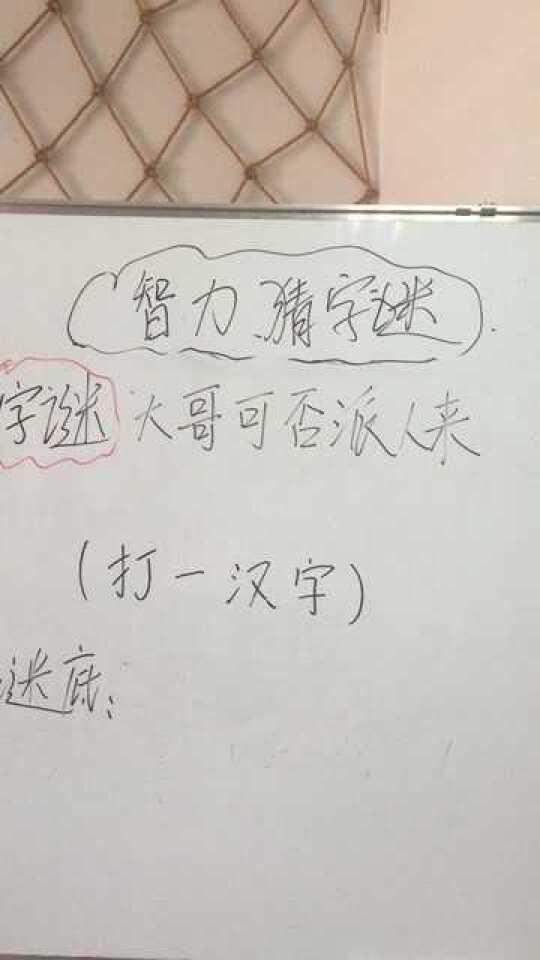 智力猜字谜
字谜 大哥可否派人来
(打一汉字)
谜底: